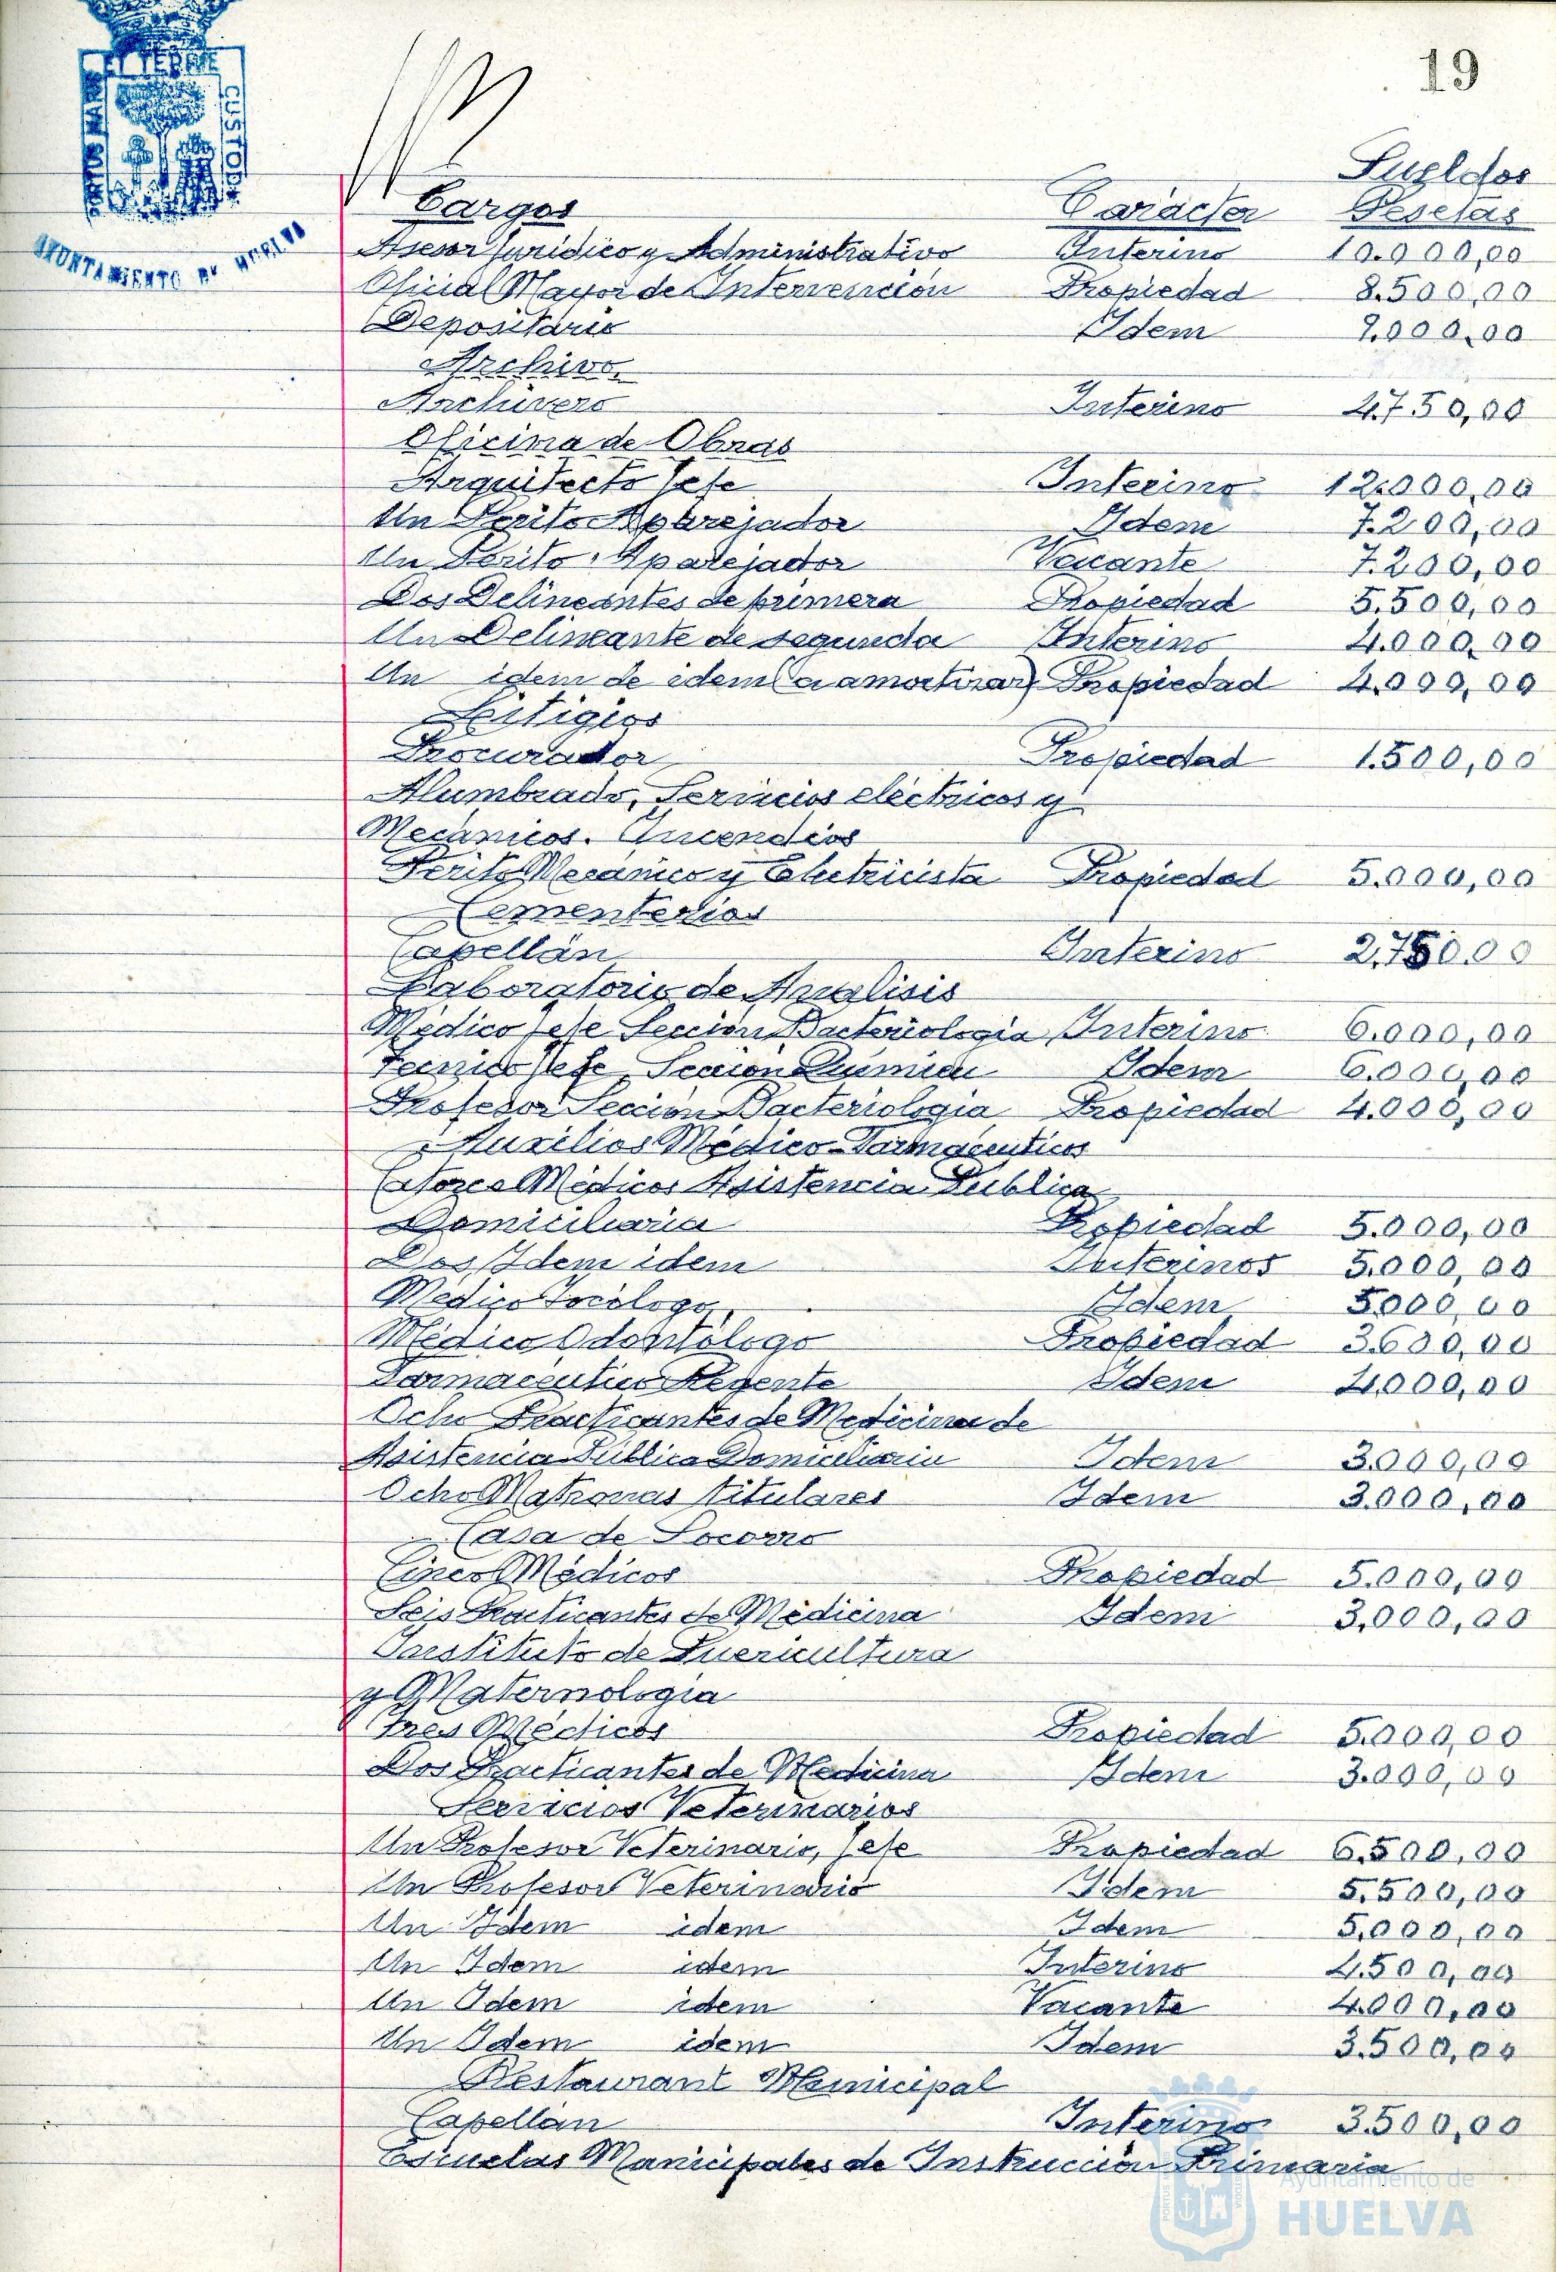 19
PORTUS MARIS ET TERRE CUSTODIA
AYUNTAMIENTO DE HUELVA
Sueldos
Cargos Carácter Pesetas
Asesor Jurídico y Administrativo Interino 10.000,00
Oficial Mayor de Intervención Propiedad 8.500,00
Depositario Idem 9.000,00
Archivo.
Archivero Interino 4.750,00
Oficina de Obras
Arquitecto Jefe Interino 12.000,00
Un Perito Aparejador Idem 7.200,00
Un Perito Aparejador Vacante 7.200,00
Dos Delineantes de primera Propiedad 5.500,00
Un Delineante de segunda Interino 4.000,00
Un idem de idem (a amortizar) Propiedad 4.000,00
Litigios
Procurador Propiedad 1.500,00
Alumbrado, Servicios eléctricos y
Mecánicos. Incendios
Perito Mecánico y Electricista Propiedad 5.000,00
Cementerios
Capellán Interino 2.750.00
Laboratorio de Análisis
Médico Jefe Sección Bacteriología Interino 6.000,00
Tecnico Jefe Sección Química Idem 6.000,00
Profesor Sección Bacteriología Propiedad 4.000,00
Auxilios Médico-Farmacéuticos
Catorce Médicos Asistencia Pública
Domiciliaria Propiedad 5.000,00
Dos Idem idem Interinos 5.000,00
Médico Tocólogo Idem 5000,00
Médico Odontólogo Propiedad 3.600,00
Farmacéutico Regente Idem 4.000,00
Ocho Practicantes de Medicina de
Asistencia Pública Domiciliaria Idem 3.000,00
Ocho Matronas titulares Idem 3.000,00
Casa de Socorro
Cinco Médicos Propiedad 5.000,00
Seis Practicantes de Medicina Idem 3.000,00
Instituto de Puericultura
y Maternología
Tres Médicos Propiedad 5.000,00
Dos Practicantes de Medicina Idem 3.000,00
Servicios Veterinarios
Un Profesor Veterinario, Jefe Propiedad 6.500,00
Un Profesor Veterinario Idem 5.500,00
Un Idem idem Idem 5.000,00
Un Idem idem Interino 4.500,00
Un Idem idem Vacante 4.000,00
Un Idem idem Idem 3.500,00
Restaurant Municipal
Capellán Interino 3.500,00
Escuelas Municipales de Instrucción Primaria
Ayuntamiento de
HUELVA